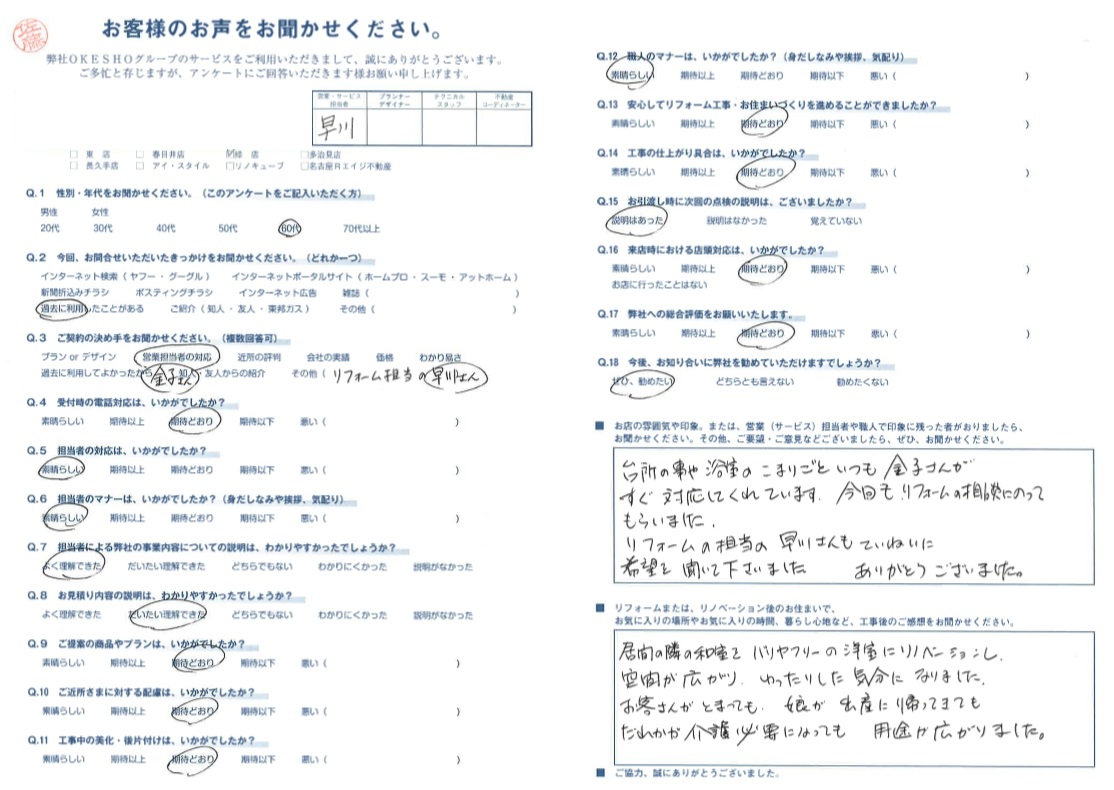 佐藤
お客様のお声をお聞かせください。
弊社OKESHOグループのサービスをご利用いただきまして、誠にありがとうございます。
ご多忙と存じますが、アンケートにご回答いただきます様お願い申し上げます。
営業・サービス担当者 プランナーデザイナー テクニカルスタッフ 不動産コーディネーター
早川
□ 東店 □ 春日井店 ☑緑店 □多治見店
□ 長久手店 □ アイ・スタイル □リノキューブ □名古屋Rエイジ不動産
Q.1 性別・年代をお聞かせください。（このアンケートをご記入いただく方）
男性 女性
20代 30代 40代 50代 60代 70代以上
Q.2 今回、お問合せいただいたきっかけをお聞かせください。（どれか一つ）
インターネット検索（ ヤフー ・ グーグル ） インターネットポータルサイト（ ホームプロ ・ スーモ ・ アットホーム ）
新聞折込みチラシ ポスティングチラシ インターネット広告 雑誌（ ）
過去に利用したことがある ご紹介（ 知人 ・ 友人 ・ 東邦ガス ） その他（ ）
Q.3 ご契約の決め手をお聞かせください。（複数回答可）
プラン or デザイン 営業担当者の対応 近所の評判 会社の実績 価格 わかり易さ
過去に利用してよかったから 金子さん 知人・友人からの紹介 その他（ リフォーム担当の早川さん
Q.4 受付時の電話対応は、いかがでしたか？
素晴らしい 期待以上 期待どおり 期待以下 悪い（ ）
Q.5 担当者の対応は、いかがでしたか？
素晴らしい 期待以上 期待どおり 期待以下 悪い（ ）
Q.6 担当者のマナーは、いかがでしたか？（身だしなみや挨拶、気配り）
素晴らしい 期待以上 期待どおり 期待以下 悪い（ ）
Q.7 担当者による弊社の事業内容についての説明は、わかりやすかったでしょうか？
よく理解できた だいたい理解できた どちらでもない わかりにくかった 説明がなかった
Q.8 お見積り内容の説明は、わかりやすかったでしょうか？
よく理解できた だいたい理解できた どちらでもない わかりにくかった 説明がなかった
Q.9 ご提案の商品やプランは、いかがでしたか？
素晴らしい 期待以上 期待どおり 期待以下 悪い（ ）
Q.10 ご近所さまに対する配慮は、いかがでしたか？
素晴らしい 期待以上 期待どおり 期待以下 悪い（ ）
Q.11 工事中の美化・後片付けは、いかがでしたか？
素晴らしい 期待以上 期待どおり 期待以下 悪い（ ）
Q.12 職人のマナーは、いかがでしたか？（身だしなみや挨拶、気配り）
素晴らしい 期待以上 期待どおり 期待以下 悪い（ ）
Q.13 安心してリフォーム工事・お住まいづくりを進めることができましたか？
素晴らしい 期待以上 期待どおり 期待以下 悪い（ ）
Q.14 工事の仕上がり具合は、いかがでしたか？
素晴らしい 期待以上 期待どおり 期待以下 悪い（ ）
Q.15 お引渡し時に次回の点検の説明は、ございましたか？
説明はあった 説明はなかった 覚えていない
Q.16 来店時における店頭対応は、いかがでしたか？
素晴らしい 期待以上 期待どおり 期待以下 悪い（ ）
お店に行ったことはない
Q.17 弊社への総合評価をお願いいたします。
素晴らしい 期待以上 期待どおり 期待以下 悪い（ ）
Q.18 今後、お知り合いに弊社を勧めていただけますでしょうか？
ぜひ、勧めたい どちらとも言えない 勧めたくない
■ お店の雰囲気や印象。または、営業（サービス）担当者や職人で印象に残った者がおりましたら、
お聞かせください。その他、ご要望・ご意見などございましたら、ぜひ、お聞かせください。
台所の事や浴室のこまりごといつも金子さんが
すぐ対応してくれています。今回もリフォームの相談にのって
もらいました。
リフォームの担当の早川さんもていねいに
希望を聞いて下さいました ありがとうございました。
■ リフォームまたは、リノベーション後のお住まいで、
お気に入りの場所やお気に入りの時間、暮らし心地など、工事後のご感想をお聞かせください。
居間の隣の和室をバリヤフリーの洋室にリノベーションし、
空間が広がり、ゆったりした気分になりました。
お客さんがとまっても、娘が出産に帰ってきても
だれかが介護必要になっても 用途が広がりました。
■ ご協力、誠にありがとうございました。